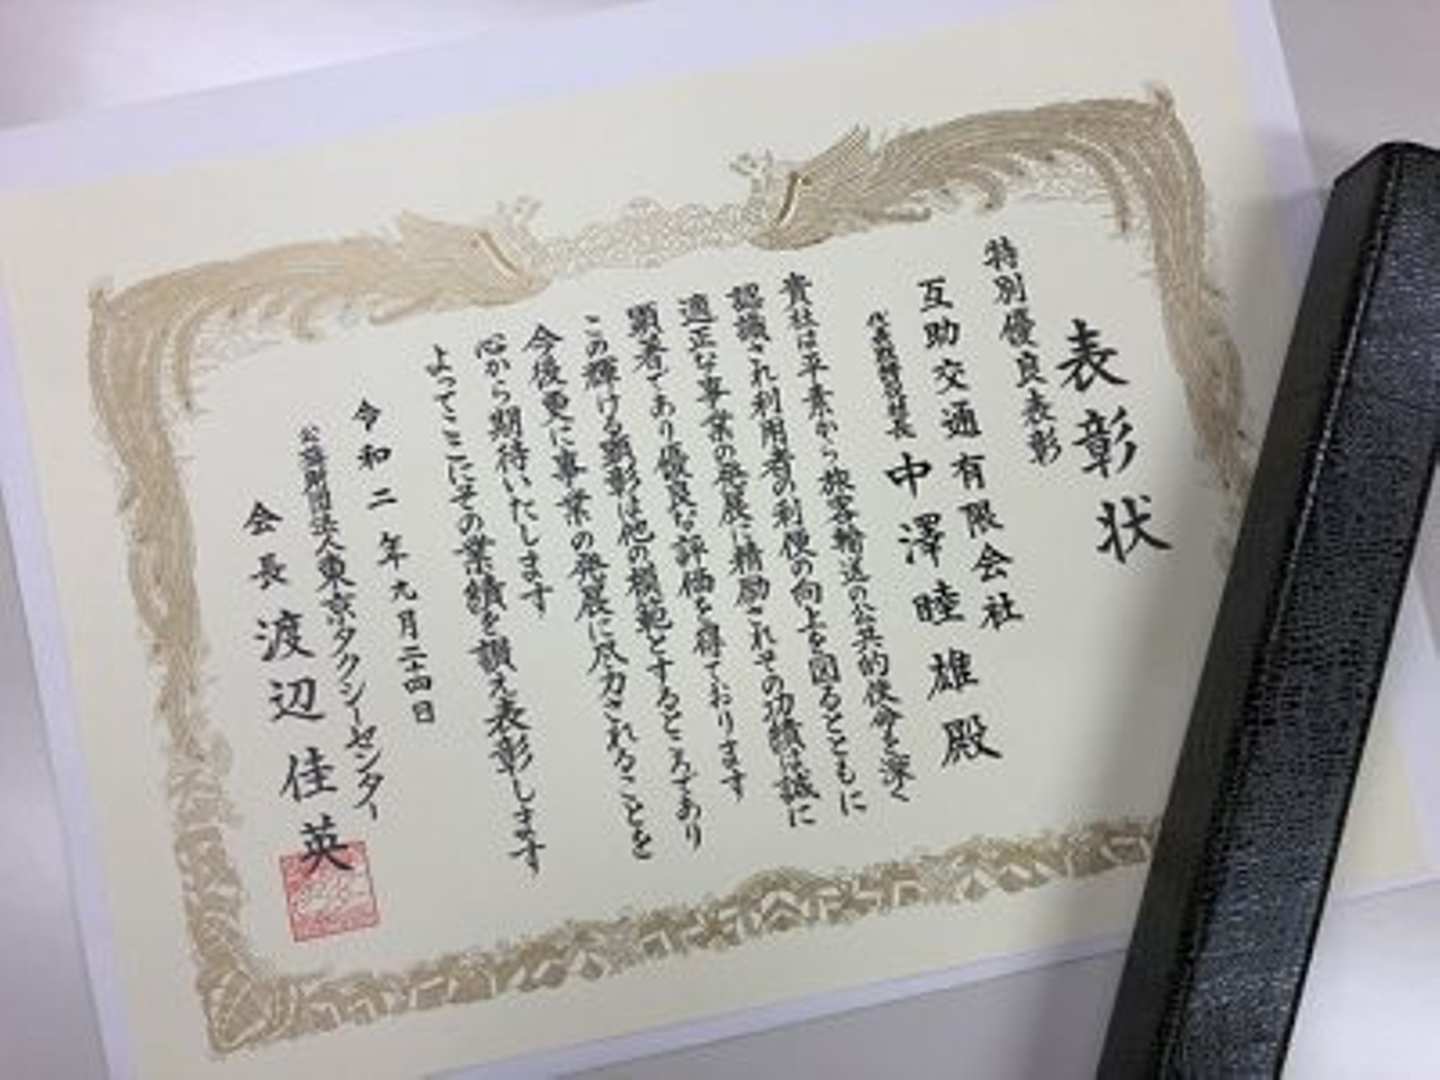 表彰状
特別優良表彰
互助交通有限会社
代表取締役社長 中澤睦雄殿
貴社は平素から旅客輸送の公共的使命を深く
認識され利用者の利便の向上を図るとともに
適正な事業の発展に精励されその功績は誠に
顕著であり優良な評価を得ております
この輝ける顕彰は他の模範とするところであり
今後更に事業の発展に尽力されることを
心から期待いたします
よってここにその業績を讃え表彰します
令和二年九月二十四日
公益財団法人東京タクシーセンター
会長 渡辺佳英